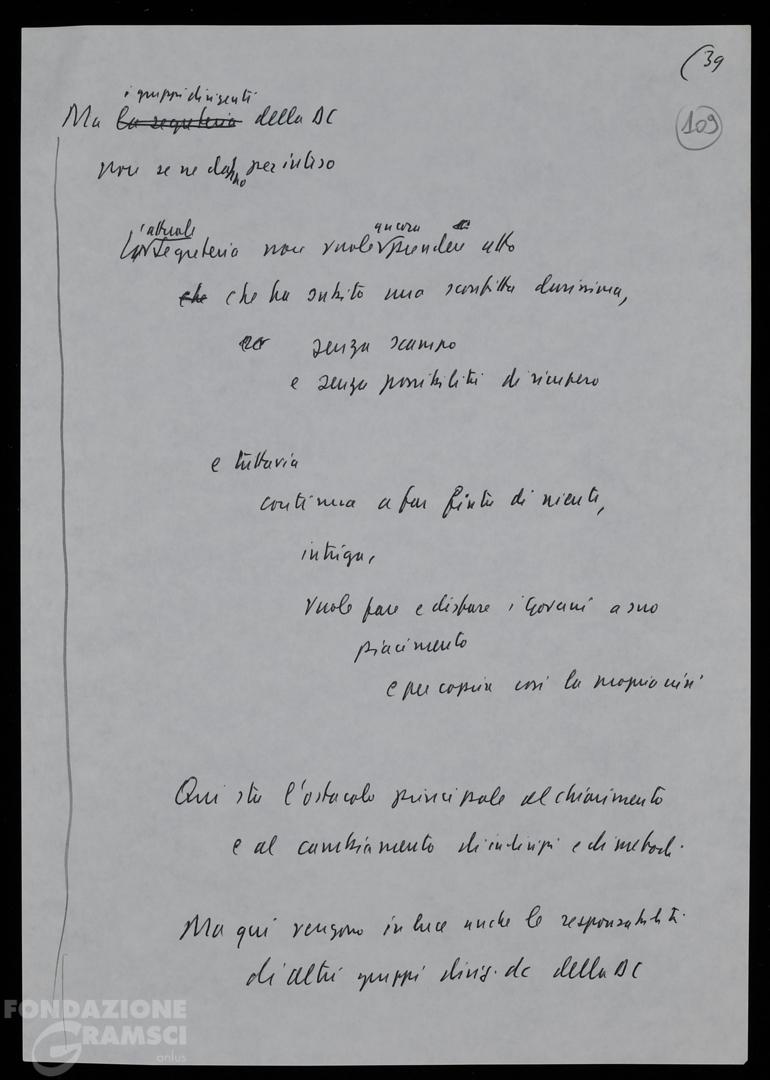 (39
109
i gruppi dirigenti
Ma la segreteria della DC
non se ne danno per inteso
l'attuale ancora
La segreteria non vuole prendere atto
che che ha subito una sconfitta durissima,
senza scampo
e senza possibilità di recupero
e tuttavia
continua a far finta di niente,
intriga,
vuole fare e disfare i Governi a suo
piacimento
e per coprire così la propria crisi
Qui sta l'ostacolo principale al chiarimento
e al cambiamento di indirizzi e di metodi.
Ma qui vengono in luce anche le responsabilità
di altri gruppi dirig. dc della DC
FONDAZIONE
GRAMSCI
onlus